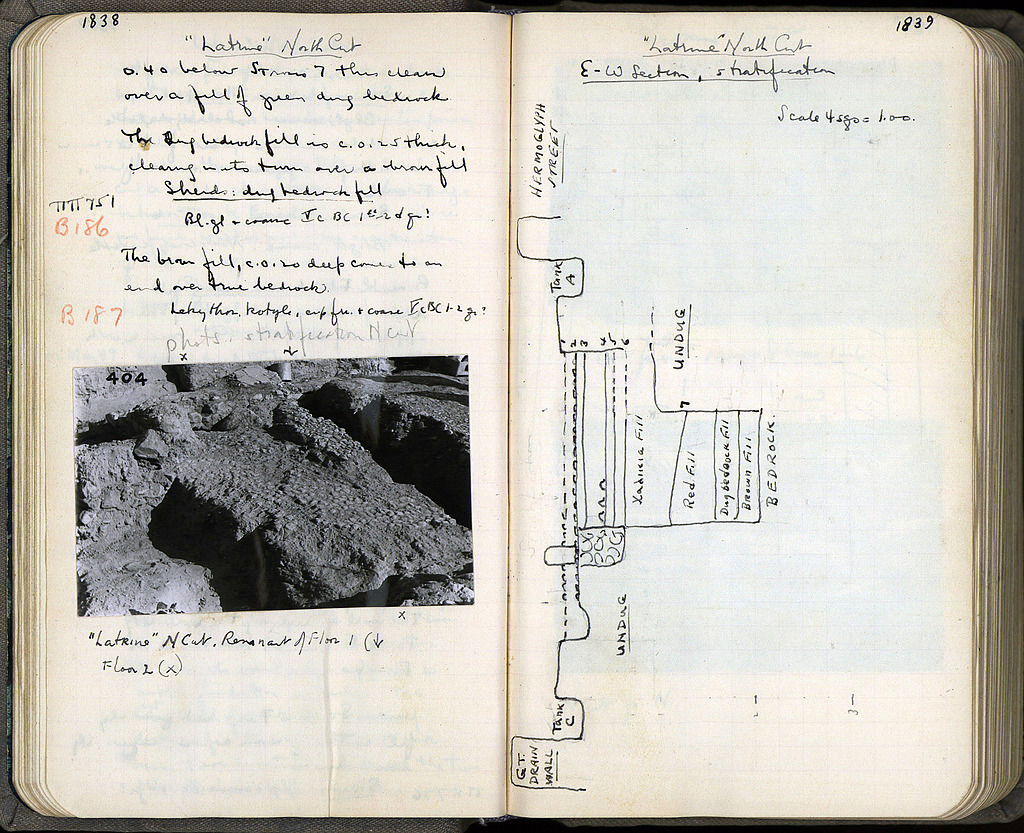 1838
"Latrine" North Cut
0.40 below Stroses 7 this clean
over a fill of green dug bedrock
The Dug bedrock fill is c. 0.25 thick,
clearing into turn over a brown fill
Sherds: dug bedrock fill
ΠΠ 751
B 186
Bl. gl + coarse V c BC 1st-2d qr?
The brown fill, c. 0.20 deep comes to an
end over true bedrock
B 187
Lekythoi, kotyle, cup frr. + coarse V c BC 1-2 qr?
photo: stratification N Cut
x
↓
404
x
"Latrine" N Cut. Remnant of Floor 1 (↓
Floor 2 (x)
1839
"Latrine" North Cut
E-W Section, stratification
Scale 4 sqs = 1.00.
HERMOGLYPH
STREET
TANK
A
1 2 3 4 5 6
UNDUG
7
Xalikia Fill
Red Fill
Dug bedrock Fill
Brown Fill
BEDROCK
UNDUG
TANK
C
GT.
DRAIN
WALL
2
3